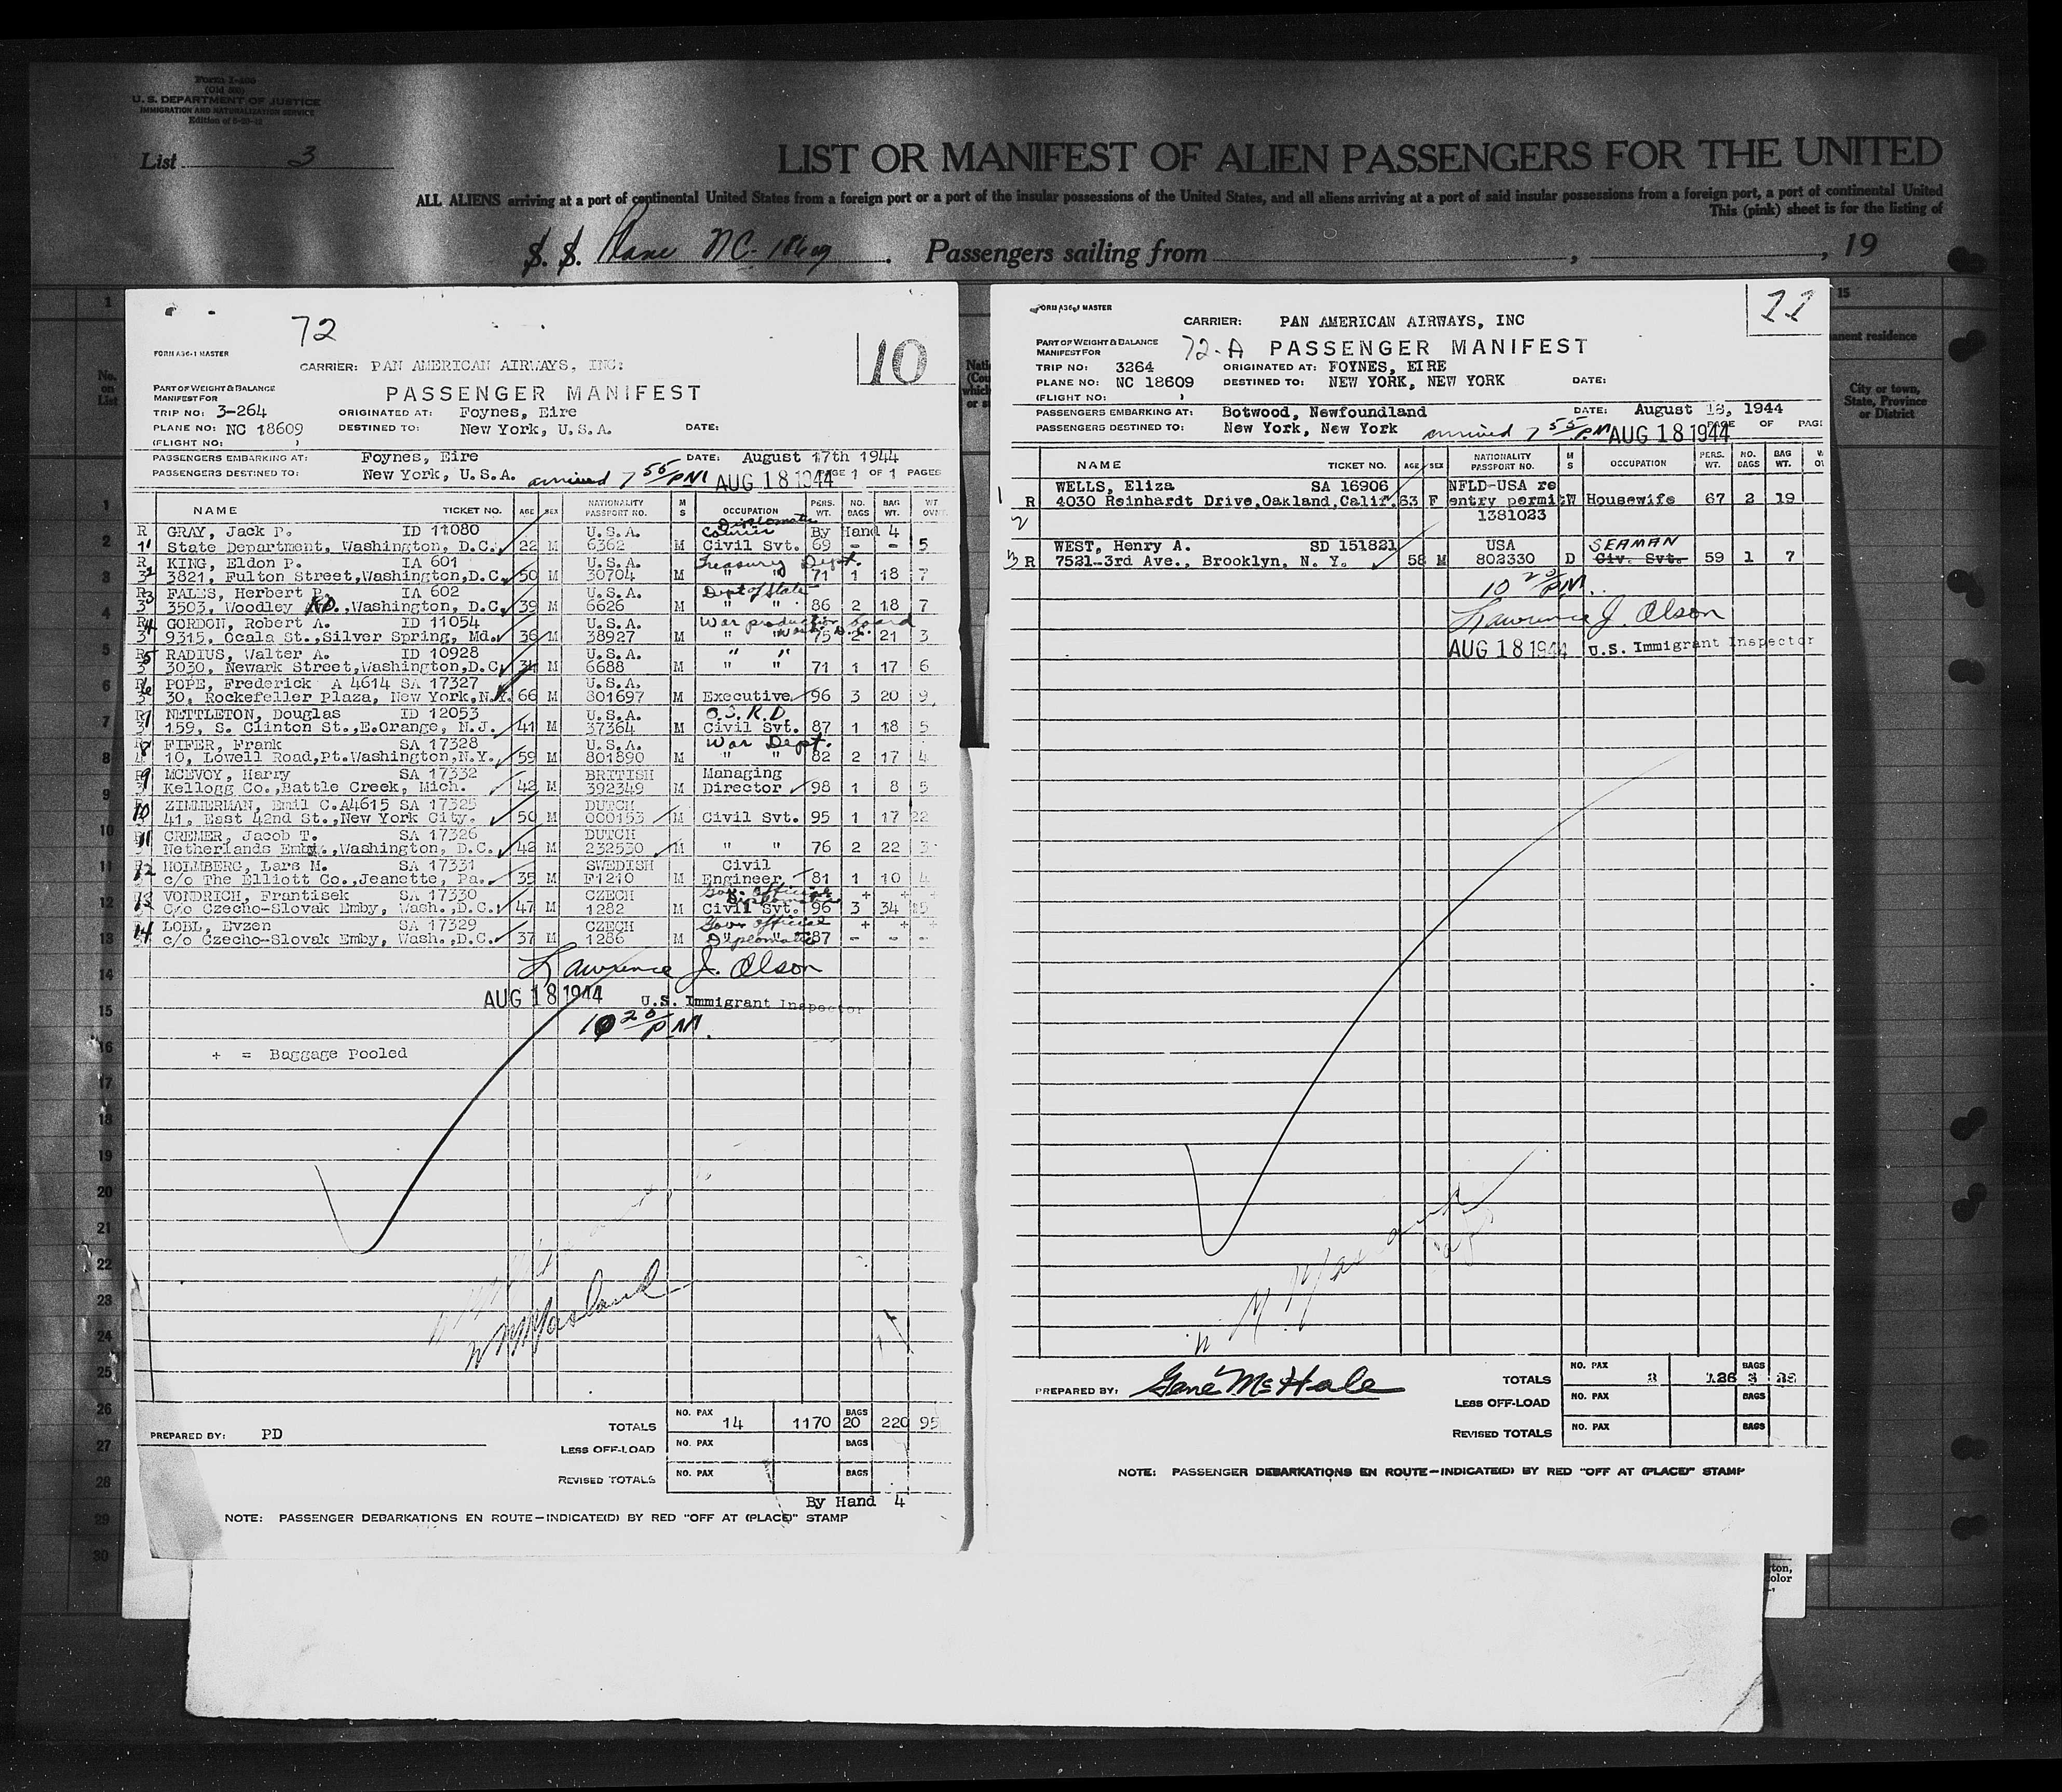 Form I-466
(Old 500)
U. S. DEPARTMENT OF JUSTICE
IMMIGRATION AND NATURALIZATION SERVICE
List 3
LIST OR MANIFEST OF ALIEN PASSENGERS FOR THE UNITED
ALL ALIENS arriving at a port of continental United States from a foreign port or a port of the insular possessions of the United States, and all aliens arriving at a port of said insular possessions from a foreign port, a port of continental United
This (pink) sheet is for the listing of
S. S. Plane NC-18609. Passengers sailing from , , 19
No. on List
72
10
FORM A36-1 MASTER
CARRIER: PAN AMERICAN AIRWAYS, INC:
PART OF WEIGHT & BALANCE
MANIFEST FOR
PASSENGER MANIFEST
TRIP NO: 3-264 ORIGINATED AT: Foynes, Eire
PLANE NO: NC 18609 DESTINED TO: New York, U.S.A. DATE:
(FLIGHT NO: )
PASSENGERS EMBARKING AT: Foynes, Eire DATE: August 17th 1944
PASSENGERS DESTINED TO: New York, U.S.A. arrived 7 55 PM AUG 18 1944 PAGE 1 OF 1 PAGES
NAME TICKET NO. AGE SEX NATIONALITY PASSPORT NO. M S OCCUPATION PERS. WT. NO. BAGS BAG WT.
R GRAY, Jack P. ID 11080 U.S.A. Diplomatic Courier By Hand 4
1 State Department, Washington, D.C. 22 M 6362 M Civil Svt. 69 - - 5
R KING, Eldon P. IA 601 U.S.A. Treasury Dept.
2 3821, Fulton Street,Washington,D.C. 50 M 30704 M " " 71 1 18 7
R 3 FALES, Herbert P. IA 602 U.S.A. Dept of State
3503, Woodley RD.,Washington, D.C. 39 M 6626 M " " 86 2 18 7
R 4 GORDON, Robert A. ID 11054 U.S.A. War production board
9315, Ocala St.,Silver Spring, Md. 36 M 38927 M " " 75 2 21 3
R 5 RADIUS, Walter A. ID 10928 U.S.A. " "
3030, Newark Street,Washington,D.C. 34 M 6688 M " " 71 1 17 6
R 6 POPE, Frederick A 4614 SA 17327 U.S.A.
30, Rockefeller Plaza, New York,N.Y. 66 M 801697 M Executive 96 3 20 9
R 7 NETTLETON, Douglas ID 12053 U.S.A. O.S.R.D
159, S. Clinton St.,E.Orange, N.J. 41 M 37364 M Civil Svt. 87 1 18 5
R 8 FIFER, Frank SA 17328 U.S.A. War Dept.
10, Lowell Road,Pt.Washington,N.Y. 59 M 801890 M " " 82 2 17 4
9 MCEVOY, Harry SA 17332 BRITISH Managing
Kellogg Co.,Battle Creek, Mich. 42 M 392349 M Director 98 1 8 5
10 ZIMMERMAN, Emil C.A4615 SA 17325 DUTCH
41, East 42nd St.,New York City. 50 M 000153 M Civil Svt. 95 1 17 22
11 CREMER, Jacob T. SA 17326 DUTCH
Netherlands Emby.,Washington, D.C. 42 M 232530 M " " 76 2 22 3
12 HOLMBERG, Lars M. SA 17331 SWEDISH Civil
c/o The Elliott Co.,Jeanette, Pa. 35 M F1210 Engineer 81 1 10 4
13 VONDRICH, Frantisek SA 17330 CZECH Gov. official + +
C/o Czecho-Slovak Emby, Wash.,D.C. 47 M 1282 M Civil Svt. 96 3 34 15
14 LOBL, Evzen SA 17329 CZECH Gov official + +
c/o Czecho-Slovak Emby, Wash.,D.C. 37 M 1286 M Diplomatic 87 - - -
Lawrence J. Olson
AUG 18 1944 U.S. Immigrant Inspector
10 20 PM.
+ = Baggage Pooled
W M Masland
PREPARED BY: PD
TOTALS NO. PAX 14 1170 BAGS 20 220 95
LESS OFF-LOAD NO. PAX BAGS
REVISED TOTALS NO. PAX BAGS
By Hand 4
NOTE: PASSENGER DEBARKATIONS EN ROUTE—INDICATE(D) BY RED "OFF AT (PLACE)" STAMP
11
FORM A36-1 MASTER
CARRIER: PAN AMERICAN AIRWAYS, INC
PART OF WEIGHT & BALANCE
MANIFEST FOR
72-A PASSENGER MANIFEST
TRIP NO: 3264 ORIGINATED AT: FOYNES, EIRE
PLANE NO: NC 18609 DESTINED TO: NEW YORK, NEW YORK DATE:
(FLIGHT NO: )
PASSENGERS EMBARKING AT: Botwood, Newfoundland DATE: August 18, 1944
PASSENGERS DESTINED TO: New York, New York arrived 7 55 PM AUG 18 1944 PAGE OF
NAME TICKET NO. AGE SEX NATIONALITY PASSPORT NO. M S OCCUPATION PERS. WT. NO. BAGS BAG WT.
WELLS, Eliza SA 16906 NFLD-USA re
1 R 4030 Reinhardt Drive,Oakland,Calif. 63 F entry permit W Housewife 67 2 19
2 1381023
WEST, Henry A. SD 151821 USA SEAMAN
3 R 7521-3rd Ave., Brooklyn, N. Y. 58 M 802330 D Civ. Svt. 59 1 7
10 20 PM.
Lawrence J. Olson
AUG 18 1944 U.S. Immigrant Inspector
PREPARED BY: Gene McHale
TOTALS NO. PAX 126 BAGS 3
LESS OFF-LOAD NO. PAX BAGS
REVISED TOTALS NO. PAX BAGS
NOTE: PASSENGER DEBARKATIONS EN ROUTE—INDICATE(D) BY RED "OFF AT (PLACE)" STAMP
15
permanent residence
City or town,
State, Province
or District
1
2
3
4
5
6
7
8
9
10
11
12
13
14
15
16
17
18
19
20
21
22
23
24
25
26
27
28
29
30